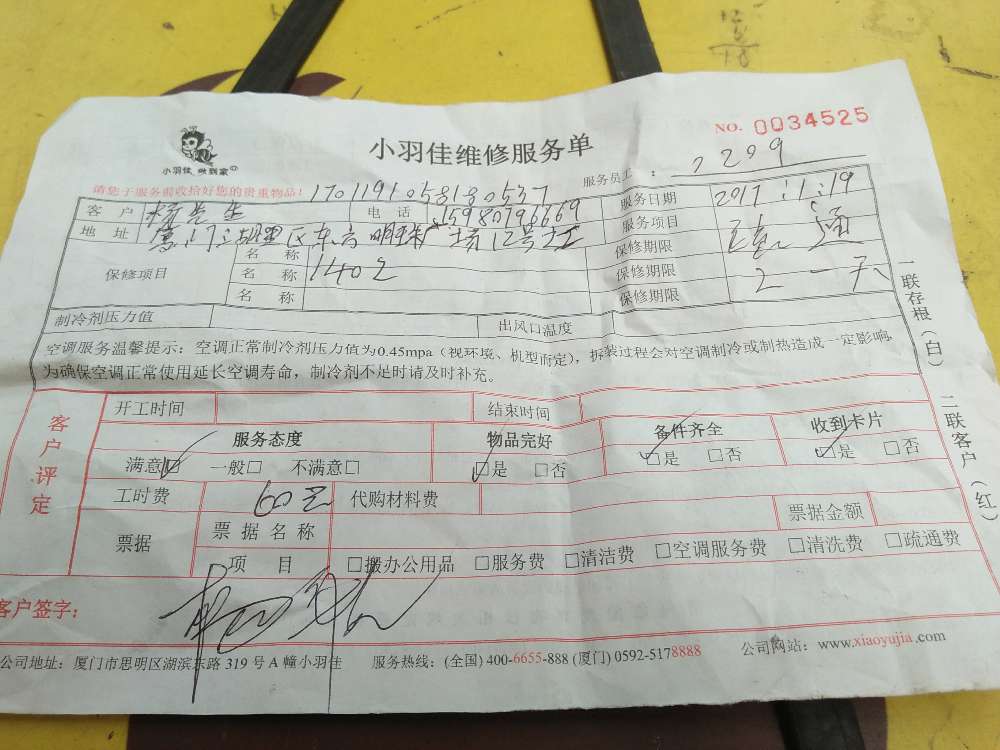 NO. 0034525
小羽佳维修服务单
小羽佳 做到家
服务员工：2209
请您于服务前收拾好您的贵重物品！ 17011910581 80537
客户 杨先生 电话 15980796669 服务日期 2017:1:19
地址 厦门湖里区 广场12号 服务项目 通
保修项目 名称 保修期限
名称 140元 保修期限
名称 保修期限
制冷剂压力值 出风口温度
空调服务温馨提示：空调正常制冷剂压力值为0.45mpa（视环境、机型而定），拆装过程会对空调制冷或制热造成一定影响，
为确保空调正常使用延长空调寿命，制冷剂不足时请及时补充。
客户评定
开工时间 结束时间
服务态度 物品完好 备件齐全 收到卡片
满意□ 一般□ 不满意□ □是 □否 □是 □否 □是 □否
工时费 60元 代购材料费
票据 票据名称 票据金额
项目 □搬办公用品 □服务费 □清洁费 □空调服务费 □清洗费 □疏通费
客户签字：
公司地址：厦门市思明区湖滨东路 319 号 A 幢小羽佳 服务热线：(全国) 400-6655-888 (厦门) 0592-5178888 公司网站：www.xiaoyujia.com
一联存根（白） 二联客户（红）